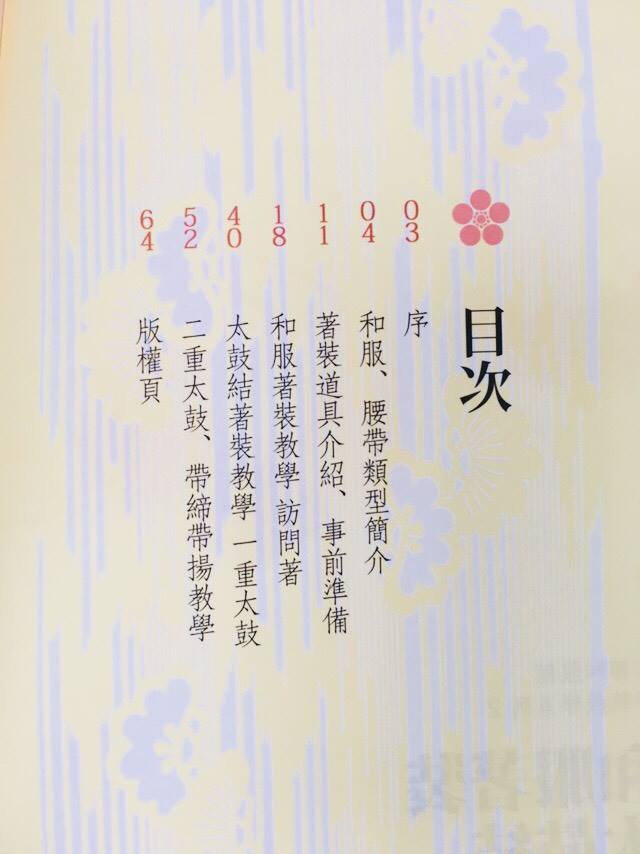 目次
03 序
04 和服、腰帶類型簡介
11 著裝道具介紹、事前準備
18 和服著裝教學 訪問著
40 太鼓結著裝教學 一重太鼓
52 二重太鼓、帶締帶揚教學
64 版權頁